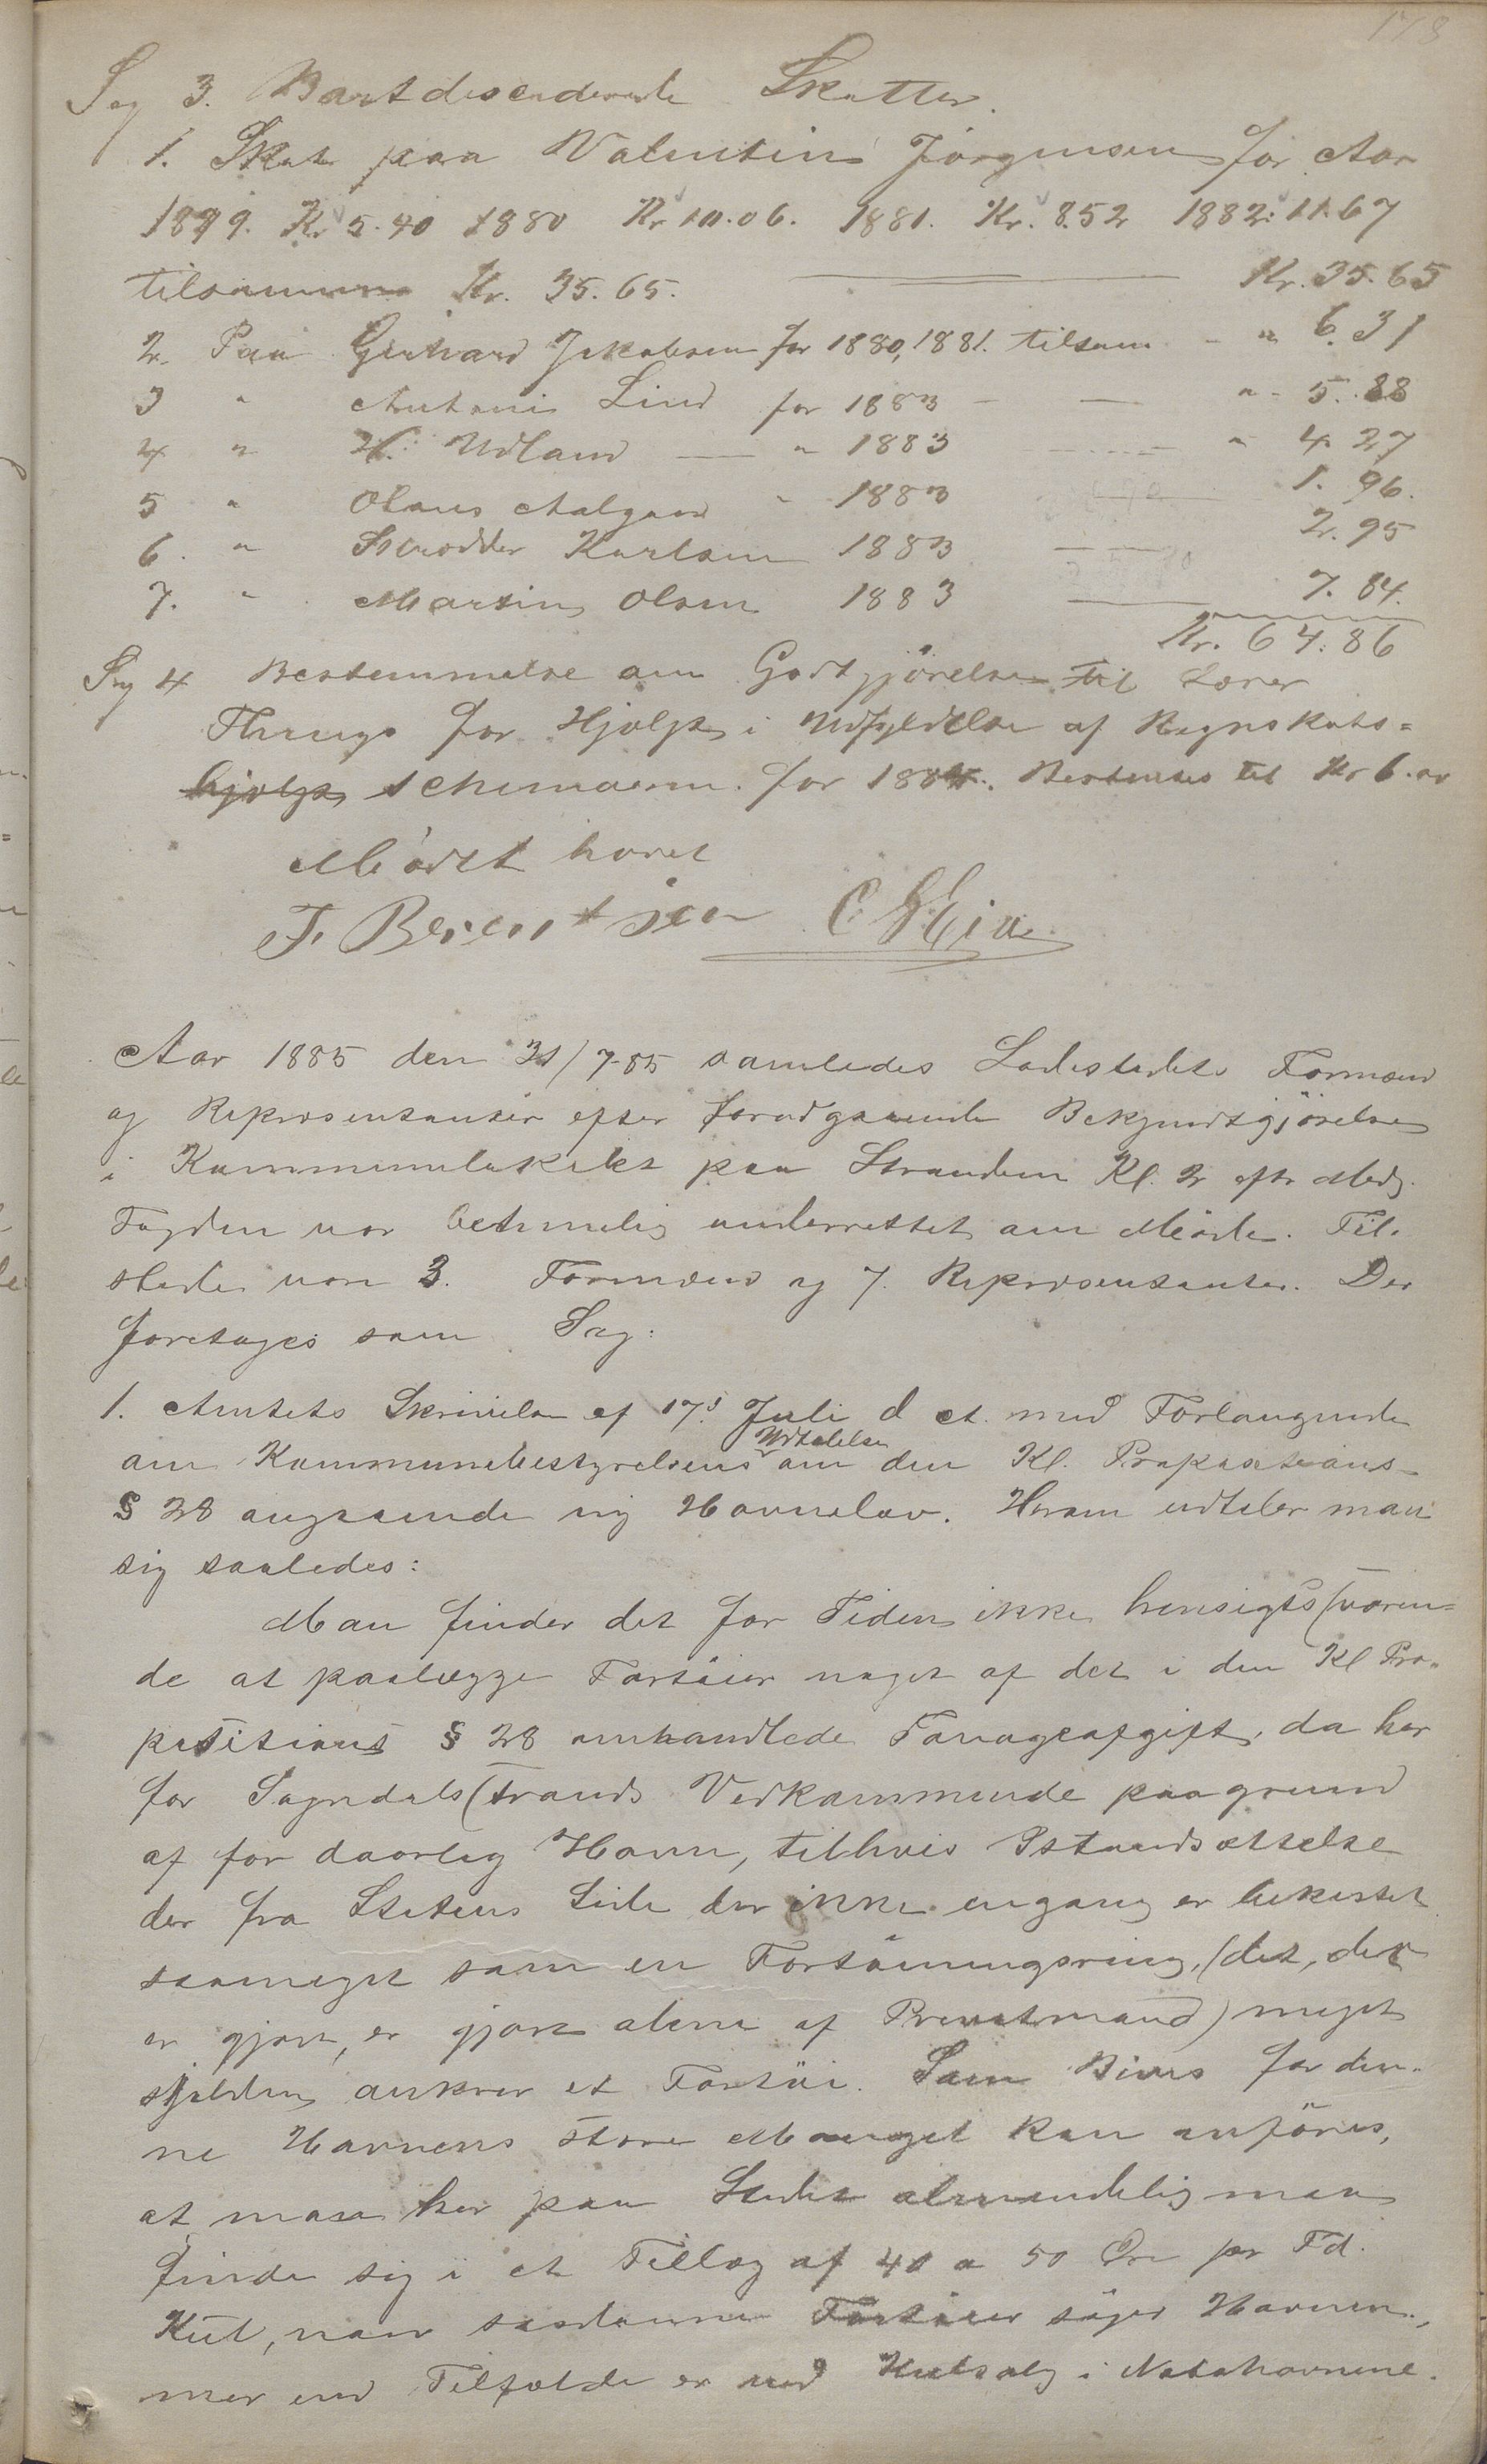 178
Sag 3. Bortdesenderede Skatter.
1. Skat paa Valentin Jörgensen for Aar
1879. Kr 5.40 1880 Kr 10.06. 1881. Kr. 8.52 1882: 11.67
tilsammen Kr. 35.65. Kr. 35.65
2. Paa Gerhard Jakobsen for 1880, 1881. tilsam - " 6.31
3 " Antoni Lind for 1883 - — " - 5.88
4 " H. Udland — " 1883 " 4.27
5 " Olaus Aalgaard " 1883 1.96.
6. " Skrædder Karlsen 1883 2.95
7. " Martin Olsen 1883 7.84.
Kr. 64.86
Sag 4 Bestemmelse om Godtgjörelse til Lærer
for Hjælp i Udfyldelse af Regnskabs=
hjælps schemaerne for 1884. Bestemtes til Kr 6.00
Mödet hævet
T. Berentsen
Aar 1885 den 31/7-85 samledes Ladestedets Formænd
og Repræsentanter efter forudgaaende Bekjendtgjörelse
i Kommunelokalet paa Stranden Kl. 2 eftr Medg.
Fogden var betimelig underrettet om Mödet. Til.
stede vare 3. Formænd og 7. Repræsentanter. Der
foretoges som Sag:
1. Amtets Skrivelse af 17d Juli d. A. med Forlangende
om Kommunebestyrelsens Udtalelse om den Kl. Propositions
§ 28 angaaende ny Havnelov. Herom udtaler man
sig saaledes:
Man finder det for Tiden ikke hensigtssvaren=
de at paalægge Fartöier noget af det i den Kl Pro-
positions § 28 omhandlede Tonnageafgift, da her
for Sogndalsstrands Vedkommende paagrund
af for daarlig Havn, tilhvis Istandsættelse
der fra Statens Side der ikke engang er bekostet
saameget som en Fortöiningsring, (det, der
er gjort, er gjort alene af Privatmænd) meget
sjelden ankrer et Fartöi. Som Bevis for den-
ne Havnens store Mangel kan anföres,
at man her paa Stedet almindelig maa
finde sig i et Tillæg af 40 a 50 Öre pr Td.
Kul, naar saadanne Fartöier söger Havnen,
mer end Tilfælde er ved Kulsalg i Nabohavnene.